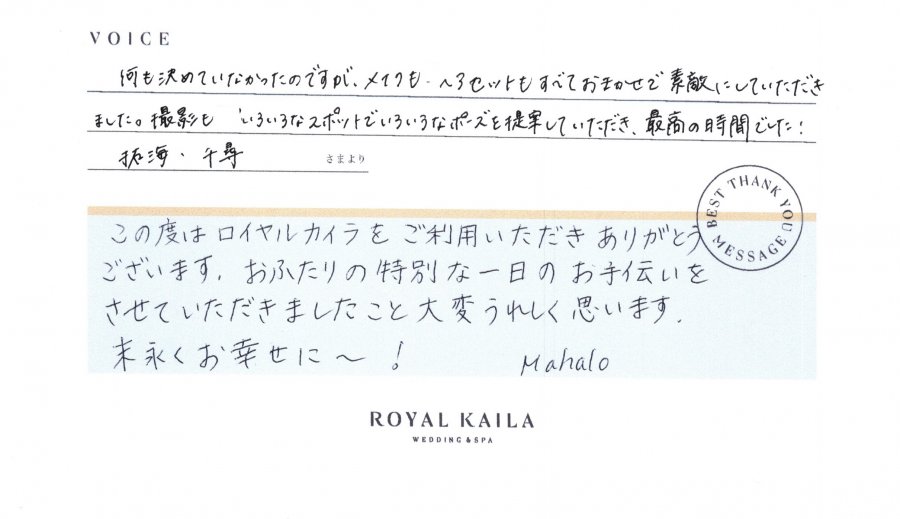 VOICE
何も決めていなかったのですが、メイクも・ヘアセットもすべておまかせで素敵にしていただき
ました。撮影も いろいろなスポットでいろいろなポーズを提案していただき、最高の時間でした!
拓海・千尋 さまより
BEST THANK YOU MESSAGE
この度はロイヤルカイラをご利用いただきありがとう
ございます。おふたりの特別な一日のお手伝いを
させていただきましたこと大変うれしく思います。
末永くお幸せに〜!
Mahalo
ROYAL KAILA
WEDDING & SPA